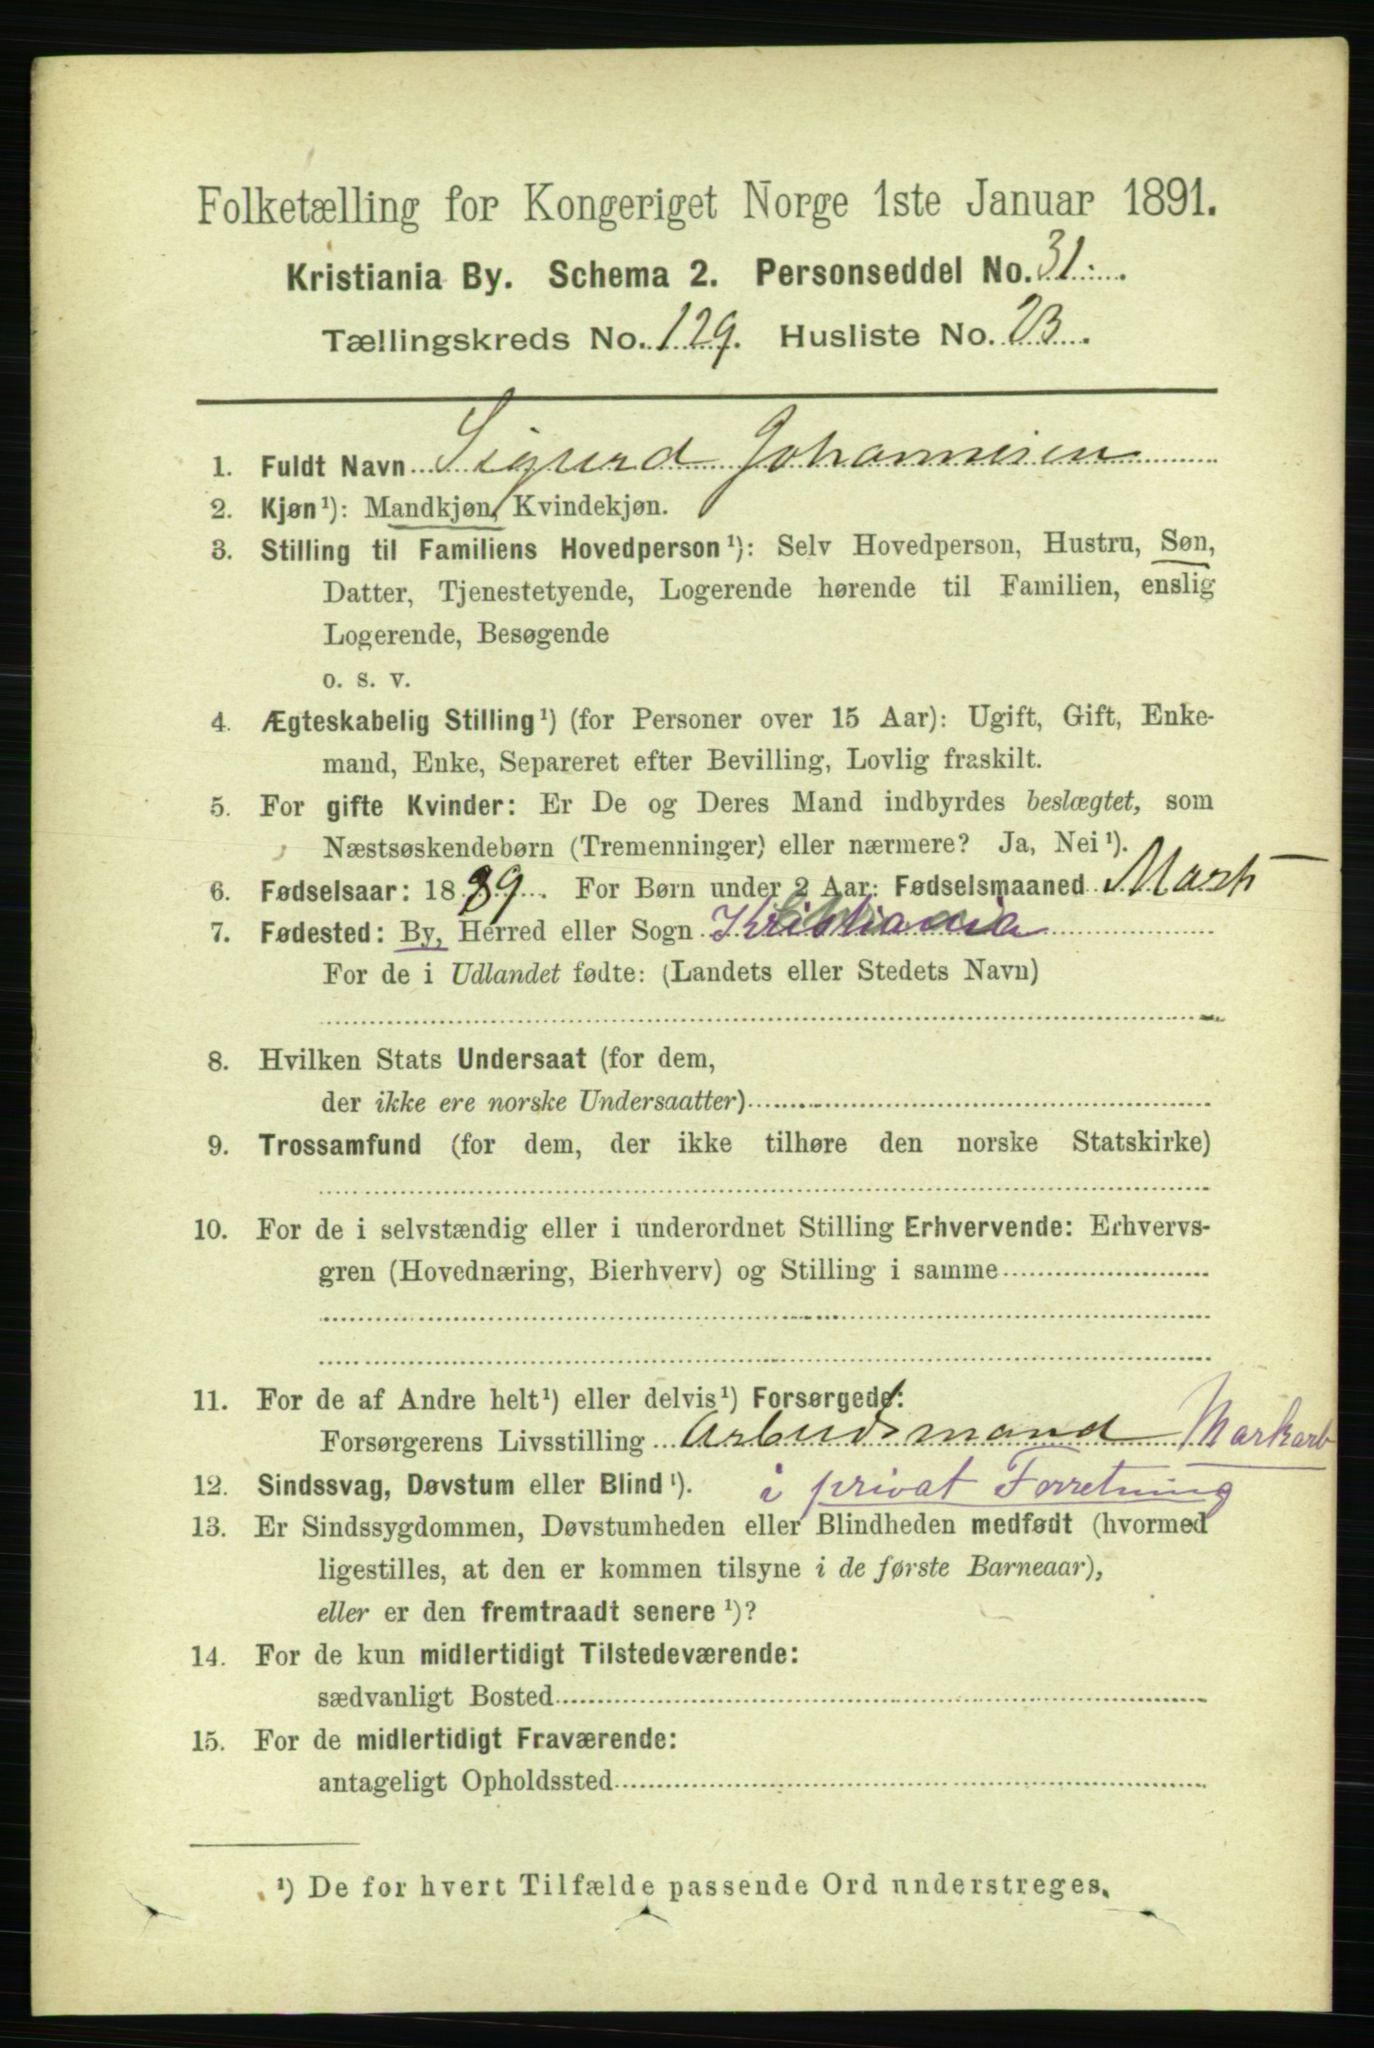 Folketælling for Kongeriget Norge 1ste Januar 1891.
Kristiania By. Schema 2. Personseddel No. 31.
Tællingskreds No. 129. Husliste No. 23.
1. Fuldt Navn Sigurd Johannesen
2. Kjøn¹): Mandkjøn, Kvindekjøn.
3. Stilling til Familiens Hovedperson¹): Selv Hovedperson, Hustru, Søn,
Datter, Tjenestetyende, Logerende hørende til Familien, enslig
Logerende, Besøgende
o. s. v.
4. Ægteskabelig Stilling¹) (for Personer over 15 Aar): Ugift, Gift, Enke-
mand, Enke, Separeret efter Bevilling, Lovlig fraskilt.
5. For gifte Kvinder: Er De og Deres Mand indbyrdes beslægtet, som
Næstsøskendebørn (Tremenninger) eller nærmere? Ja, Nei¹).
6. Fødselsaar: 1889. For Børn under 2 Aar: Fødselsmaaned Marts
7. Fødested: By, Herred eller Sogn Kristiania
For de i Udlandet fødte: (Landets eller Stedets Navn)
8. Hvilken Stats Undersaat (for dem,
der ikke ere norske Undersaatter)
9. Trossamfund (for dem, der ikke tilhøre den norske Statskirke)
10. For de i selvstændig eller i underordnet Stilling Erhvervende: Erhvervs-
gren (Hovednæring, Bierhverv) og Stilling i samme
11. For de af Andre helt¹) eller delvis¹) Forsørgede:
Forsørgerens Livsstilling Arbeidsmand Markarb
12. Sindssvag, Døvstum eller Blind¹). i privat Forretning
13. Er Sindssygdommen, Døvstumheden eller Blindheden medfødt (hvormed
ligestilles, at den er kommen tilsyne i de første Barneaar),
eller er den fremtraadt senere¹)?
14. For de kun midlertidigt Tilstedeværende:
sædvanligt Bosted
15. For de midlertidigt Fraværende:
antageligt Opholdssted
¹) De for hvert Tilfælde passende Ord understreges.